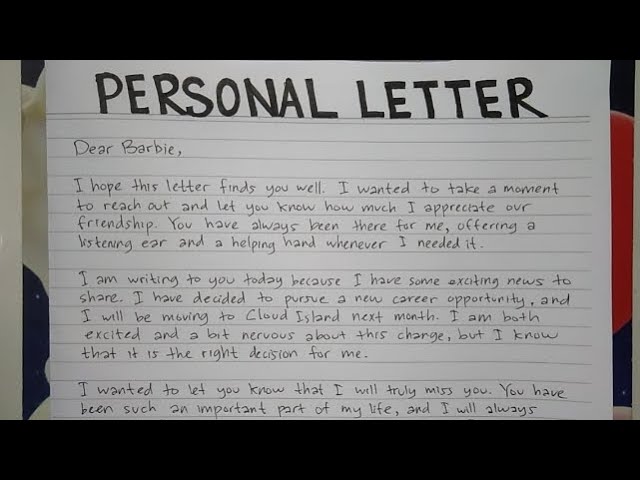 PERSONAL LETTER
Dear Barbie,
I hope this letter finds you well. I wanted to take a moment
to reach out and let you know how much I appreciate our
friendship. You have always been there for me, offering a
listening ear and a helping hand whenever I needed it.
I am writing to you today because I have some exciting news to
share. I have decided to pursue a new career opportunity, and
I will be moving to Cloud Island next month. I am both
excited and a bit nervous about this change, but I know
that it is the right decision for me.
I wanted to let you know that I will truly miss you. You have
been such an important part of my life, and I will always